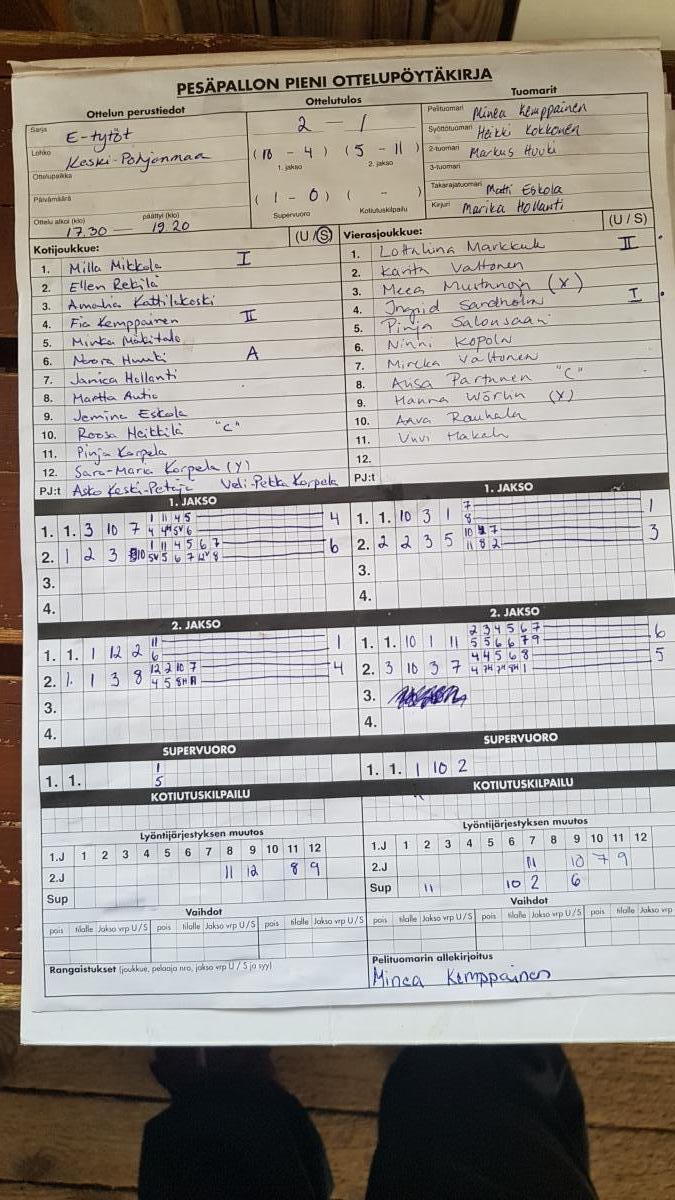 PESÄPALLON PIENI OTTELUPÖYTÄKIRJA
Ottelun perustiedot
Ottelutulos
Tuomarit
Sarja E-tytöt
2 - 1
Pelituomari Minea Kemppainen
Lohko Keski-Pohjanmaa
(10 - 4) (5 - 11)
1. jakso 2. jakso
Syöttötuomari Heikki Kokkonen
Ottelupaikka
2-tuomari Markus Huuki
3-tuomari
Päivämäärä
(1 - 0) ( - )
Supervuoro Kotiutuskilpailu
Takarajatuomari Matti Eskola
Ottelu alkoi (klo) päättyi (klo)
17.30 — 19.20
Kirjuri Marika Hollanti
Kotijoukkue: (U/S)
Vierasjoukkue: (U/S)
1. Milla Mikkola I
2. Ellen Rekilä
3. Amalia Kattilakoski
4. Fia Kemppainen II
5. Minka Mäkitalo
6. Noora Huuki A
7. Janica Hollanti
8. Martta Autio
9. Jemina Eskola
10. Roosa Heikkilä "C"
11. Pinja Korpela
12. Sara-Maria Korpela (Y)
PJ:t Asko Keski-Petäjä Veli-Pekka Korpela
1. Markkula II
2. Karita Valtonen
3. Meea (X)
4. Ingrid Sandholm I
5. Pinja
6. Ninni Kopola
7. Valtonen
8. Ansa Partanen "C"
9. Hanna Wörlin (X)
10. Aava Rauhala
11. Vuvi Hakala
12.
PJ:t
1. JAKSO
1. 1. 3 10 7 1 11 4 5 4
2. 1 2 3 1 11 4 5 6 7 6
3.
4.
1. JAKSO
1. 1. 10 3 1 7 8 1
2. 2 2 3 5 3
3.
4.
2. JAKSO
1. 1. 1 12 2 11 6 1
2. 1. 1 3 8 12 2 10 7 4
3.
4.
2. JAKSO
1. 1. 10 1 11 2 3 4 5 6 7 6
5 5 6 6 7 9
2. 3 10 3 7 4 4 5 6 8 5
3.
4.
SUPERVUORO
1. 1. 1
5
SUPERVUORO
1. 1. 1 10 2
KOTIUTUSKILPAILU
KOTIUTUSKILPAILU
Lyöntijärjestyksen muutos
1.J 1 2 3 4 5 6 7 8 9 10 11 12
2.J 11 12 8 9
Sup
Lyöntijärjestyksen muutos
1.J 1 2 3 4 5 6 7 8 9 10 11 12
2.J 11 10 7 9
Sup 11 10 2 6
Vaihdot
pois tilalle Jakso vrp U/S pois tilalle Jakso vrp U/S pois tilalle Jakso vrp U/S
Vaihdot
pois tilalle Jakso vrp U/S pois tilalle Jakso vrp U/S pois tilalle Jakso vrp
Rangaistukset (joukkue, pelaaja nro, jakso vrp U/S ja syy)
Pelituomarin allekirjoitus
Minea Kemppainen